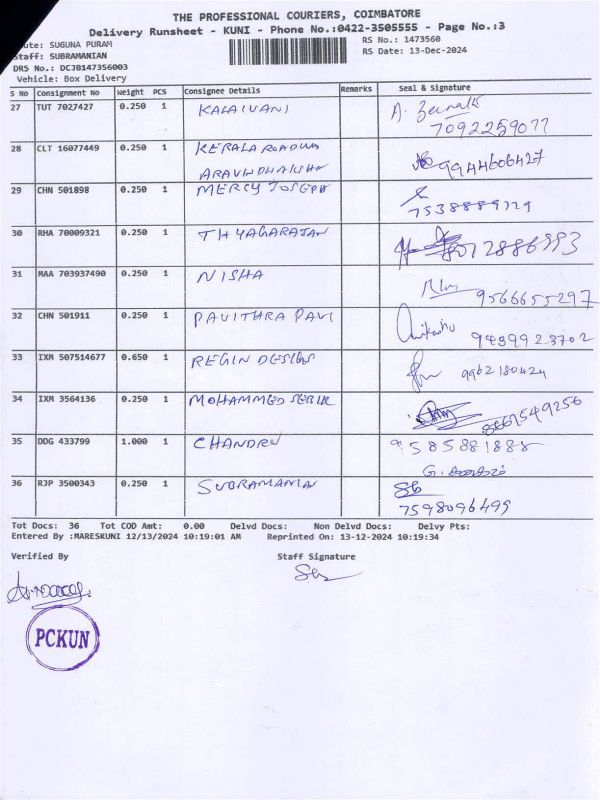 THE PROFESSIONAL COURIERS, COIMBATORE
Delivery Runsheet - KUNI - Phone No.:0422-3505555 - Page No.:3
ute: SUGUNA PURAM RS No.: 1473560
Staff: SUBRAMANIAN RS Date: 13-Dec-2024
DRS No.: DCJB147356003
Vehicle: Box Delivery
S No Consignment No Weight PCS Consignee Details Remarks Seal & Signature
27 TUT 7027427 0.250 1 KALAIVANI A.
7092259077
28 CLT 16077449 0.250 1 KERALA ROADWA
ARAVINDHAKSHA 9944606427
29 CHN 501898 0.250 1 MERCY JOSEPH
7538889729
30 RHA 70009321 0.250 1 THYAGARAJAN
31 MAA 703937490 0.250 1 NISHA
9566655297
32 CHN 501911 0.250 1 PAVITHRA PAVI
9489923702
33 IXM 507514677 0.650 1 REGIN DESIGS
9962180424
34 IXM 3564136 0.250 1 MOHAMMED SEBIR
8667549256
35 DDG 433799 1.000 1 CHANDRU 9585881888
G.
36 RJP 3500343 0.250 1 SUBRAMANIAN
7598096499
Tot Docs: 36 Tot COD Amt: 0.00 Delvd Docs: Non Delvd Docs: Delvy Pts:
Entered By :MARESKUNI 12/13/2024 10:19:01 AM Reprinted On: 13-12-2024 10:19:34
Verified By Staff Signature
PCKUN